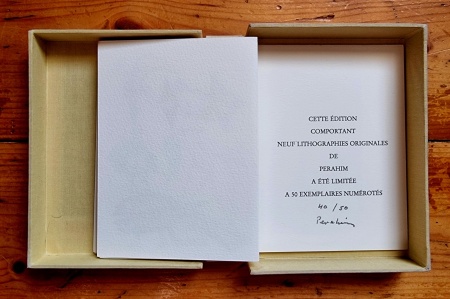 CETTE ÉDITION
COMPORTANT
NEUF LITHOGRAPHIES ORIGINALES
DE
PERAHIM
A ÉTÉ LIMITÉE
A 50 EXEMPLAIRES NUMÉROTÉS
40 / 50
Perahim